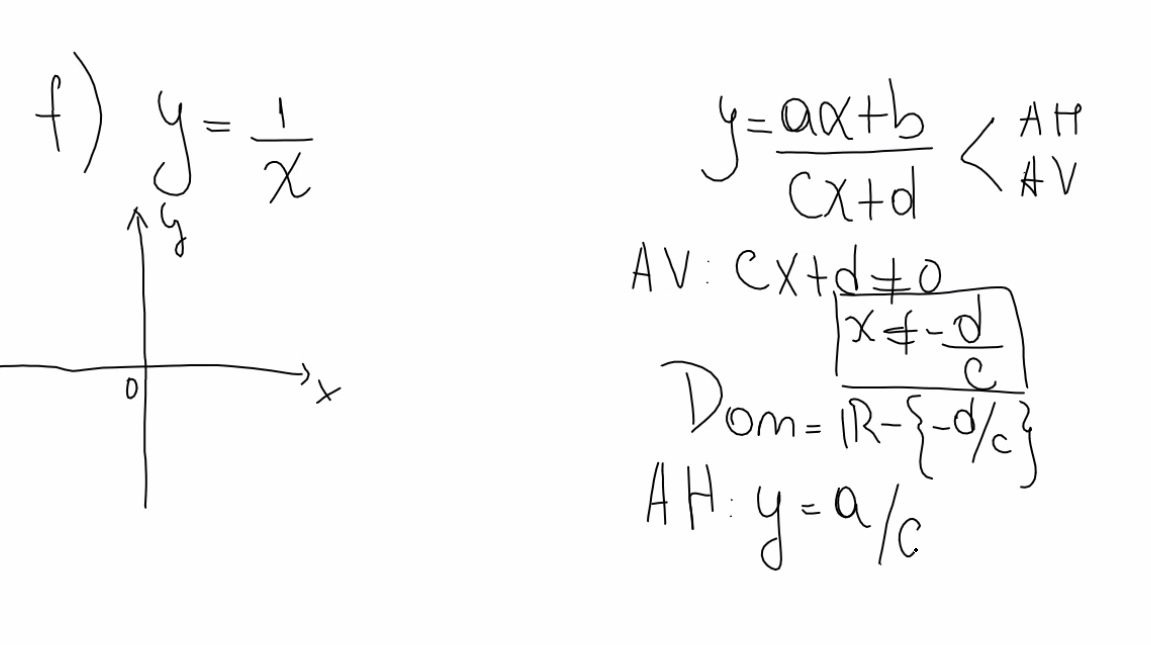 f) y = 1/x
y
0
x
y = (ax+b)/(cx+d) < AH AV
AV: cx+d ≠ 0
x ≠ -d/c
Dom = ℝ-{-d/c}
AH: y = a/c